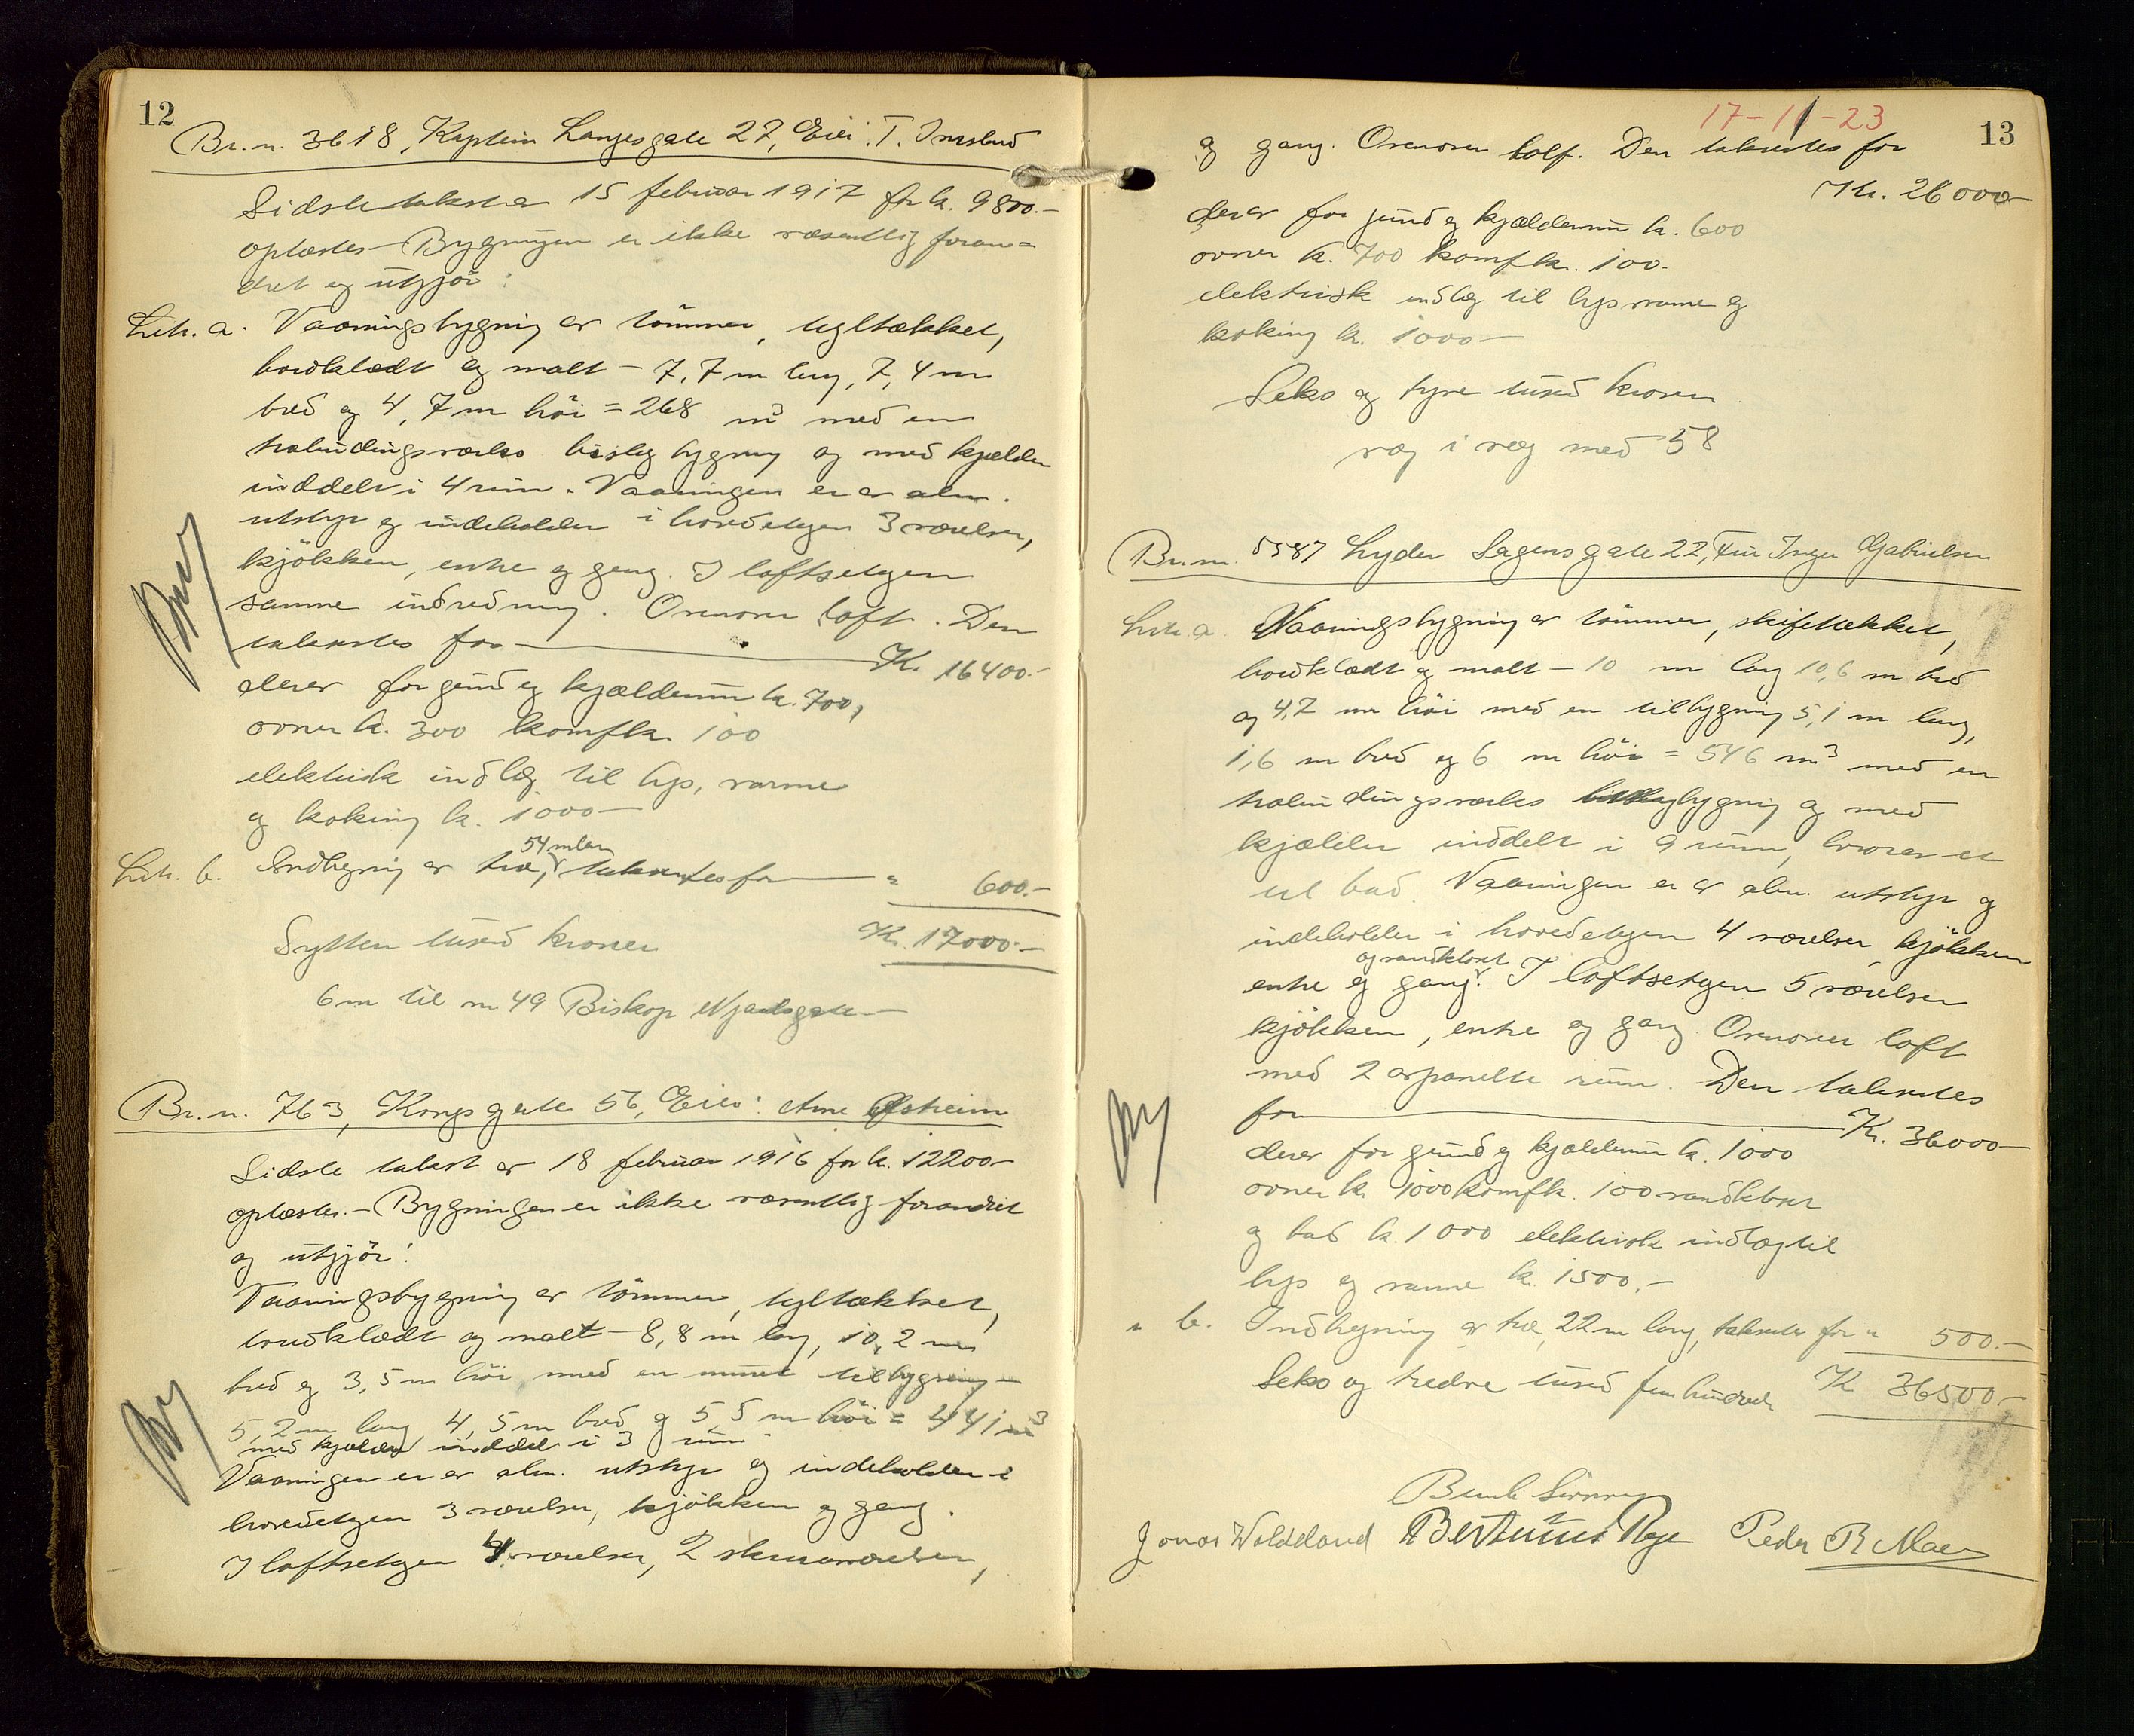 12
Br. n. 3618, Kaptein Langesgate 27, Eier: T.
Sidste takst er 15 februar 1917 for kr. 9800.-
oplæstes - Bygningen er ikke væsentlig foran=
dret og utgjør:
Litr. a. Vaaningsbygning av tømmer, tegltækket,
bordklædt og malt - 7,7 m lang, 7,4 m
bred og 4,7 m høi = 268 m³ med en
halvindingsværks bislagbygning og med kjælder
inddelt i 4 rum. Vaaningen er av alm.
utstyr og indeholder i hovedetagen 3 værelser,
kjøkken, entre og gang. I loftsetagen
samme indredning. Ovenover loft. Den
takstes for Kr. 16400.-
derav for grund og kjælderrum kr. 700,
ovner kr. 300 komf kr. 100
elektrisk indlæg til lys, varme
og koking kr. 1000-
Litr. b. Indhegning av træ, 54 m lang takstes for " 600.-
Sytten tusend kroner Kr. 17000.-
6 m til nr 49 Biskop Njaalsgate-
Br. n. 763, Kongsgate 56, Eier: Arne
Sidste takst er 18 februar 1916 for kr. 12200-
oplæstes. - Bygningen er ikke væsentlig forandret
og utgjør:
Vaaningsbygning av tømmer, tegltækket,
bordklædt og malt - 8,8 m lang, 10,2 m
bred og 3,5 m høi med en muret tilbygning-
5,2 m lang 4,5 m bred og 5,5 m høi = 441 m³
med kjælder inddelt i 3 rum.
Vaaningen er av alm. utstyr og indeholder i
hovedetagen 3 værelser, kjøkken og gang.
I loftsetagen 4 værelser, 2 skraaværelser,
17-11-23
13
og gang. Ovenover loft. Den takstes for
Kr. 26000-
derav for grund og kjælderrum kr. 600
ovner kr. 700 komf kr. 100.
elektrisk indlæg til lys varme og
koking kr. 1000-
Seks og tyve tusend kroner
væg i væg med 58
Br. nr. 5587 Lyder Sagensgate 22, Eier Inger Gabrielsen
Litr. a. Vaaningsbygning av tømmer, skifertækket,
bordklædt og malt - 10 m lang 10,6 m bred
og 4,7 m høi med en tilbygning 5,1 m lang,
1,6 m bred og 6 m høi = 546 m³ med en
halvindingsværks bislagbygning og med
kjælder inddelt i 9 rum, hvorav et
til bad. Vaaningen er av alm. utstyr og
indeholder i hovedetagen 4 værelser, kjøkken
entre og gang og vandkloset. I loftsetagen 5 værelser
kjøkken, entre og gang. Ovenover loft
med 2 avpanelte rum. Den takstes
for Kr. 36000-
derav for grund og kjælderrum kr. 1000
ovner kr. 1000 komf kr. 100 vandkloset
og bad kr. 1000 elektrisk indlæg til
lys og varme kr. 1500.-
" b. Indhegning av træ, 22 m lang, takstes for " 500.-
Seks og tredve tusend fem hundrede Kr. 36500-
Jonas Bertinius Peder B.